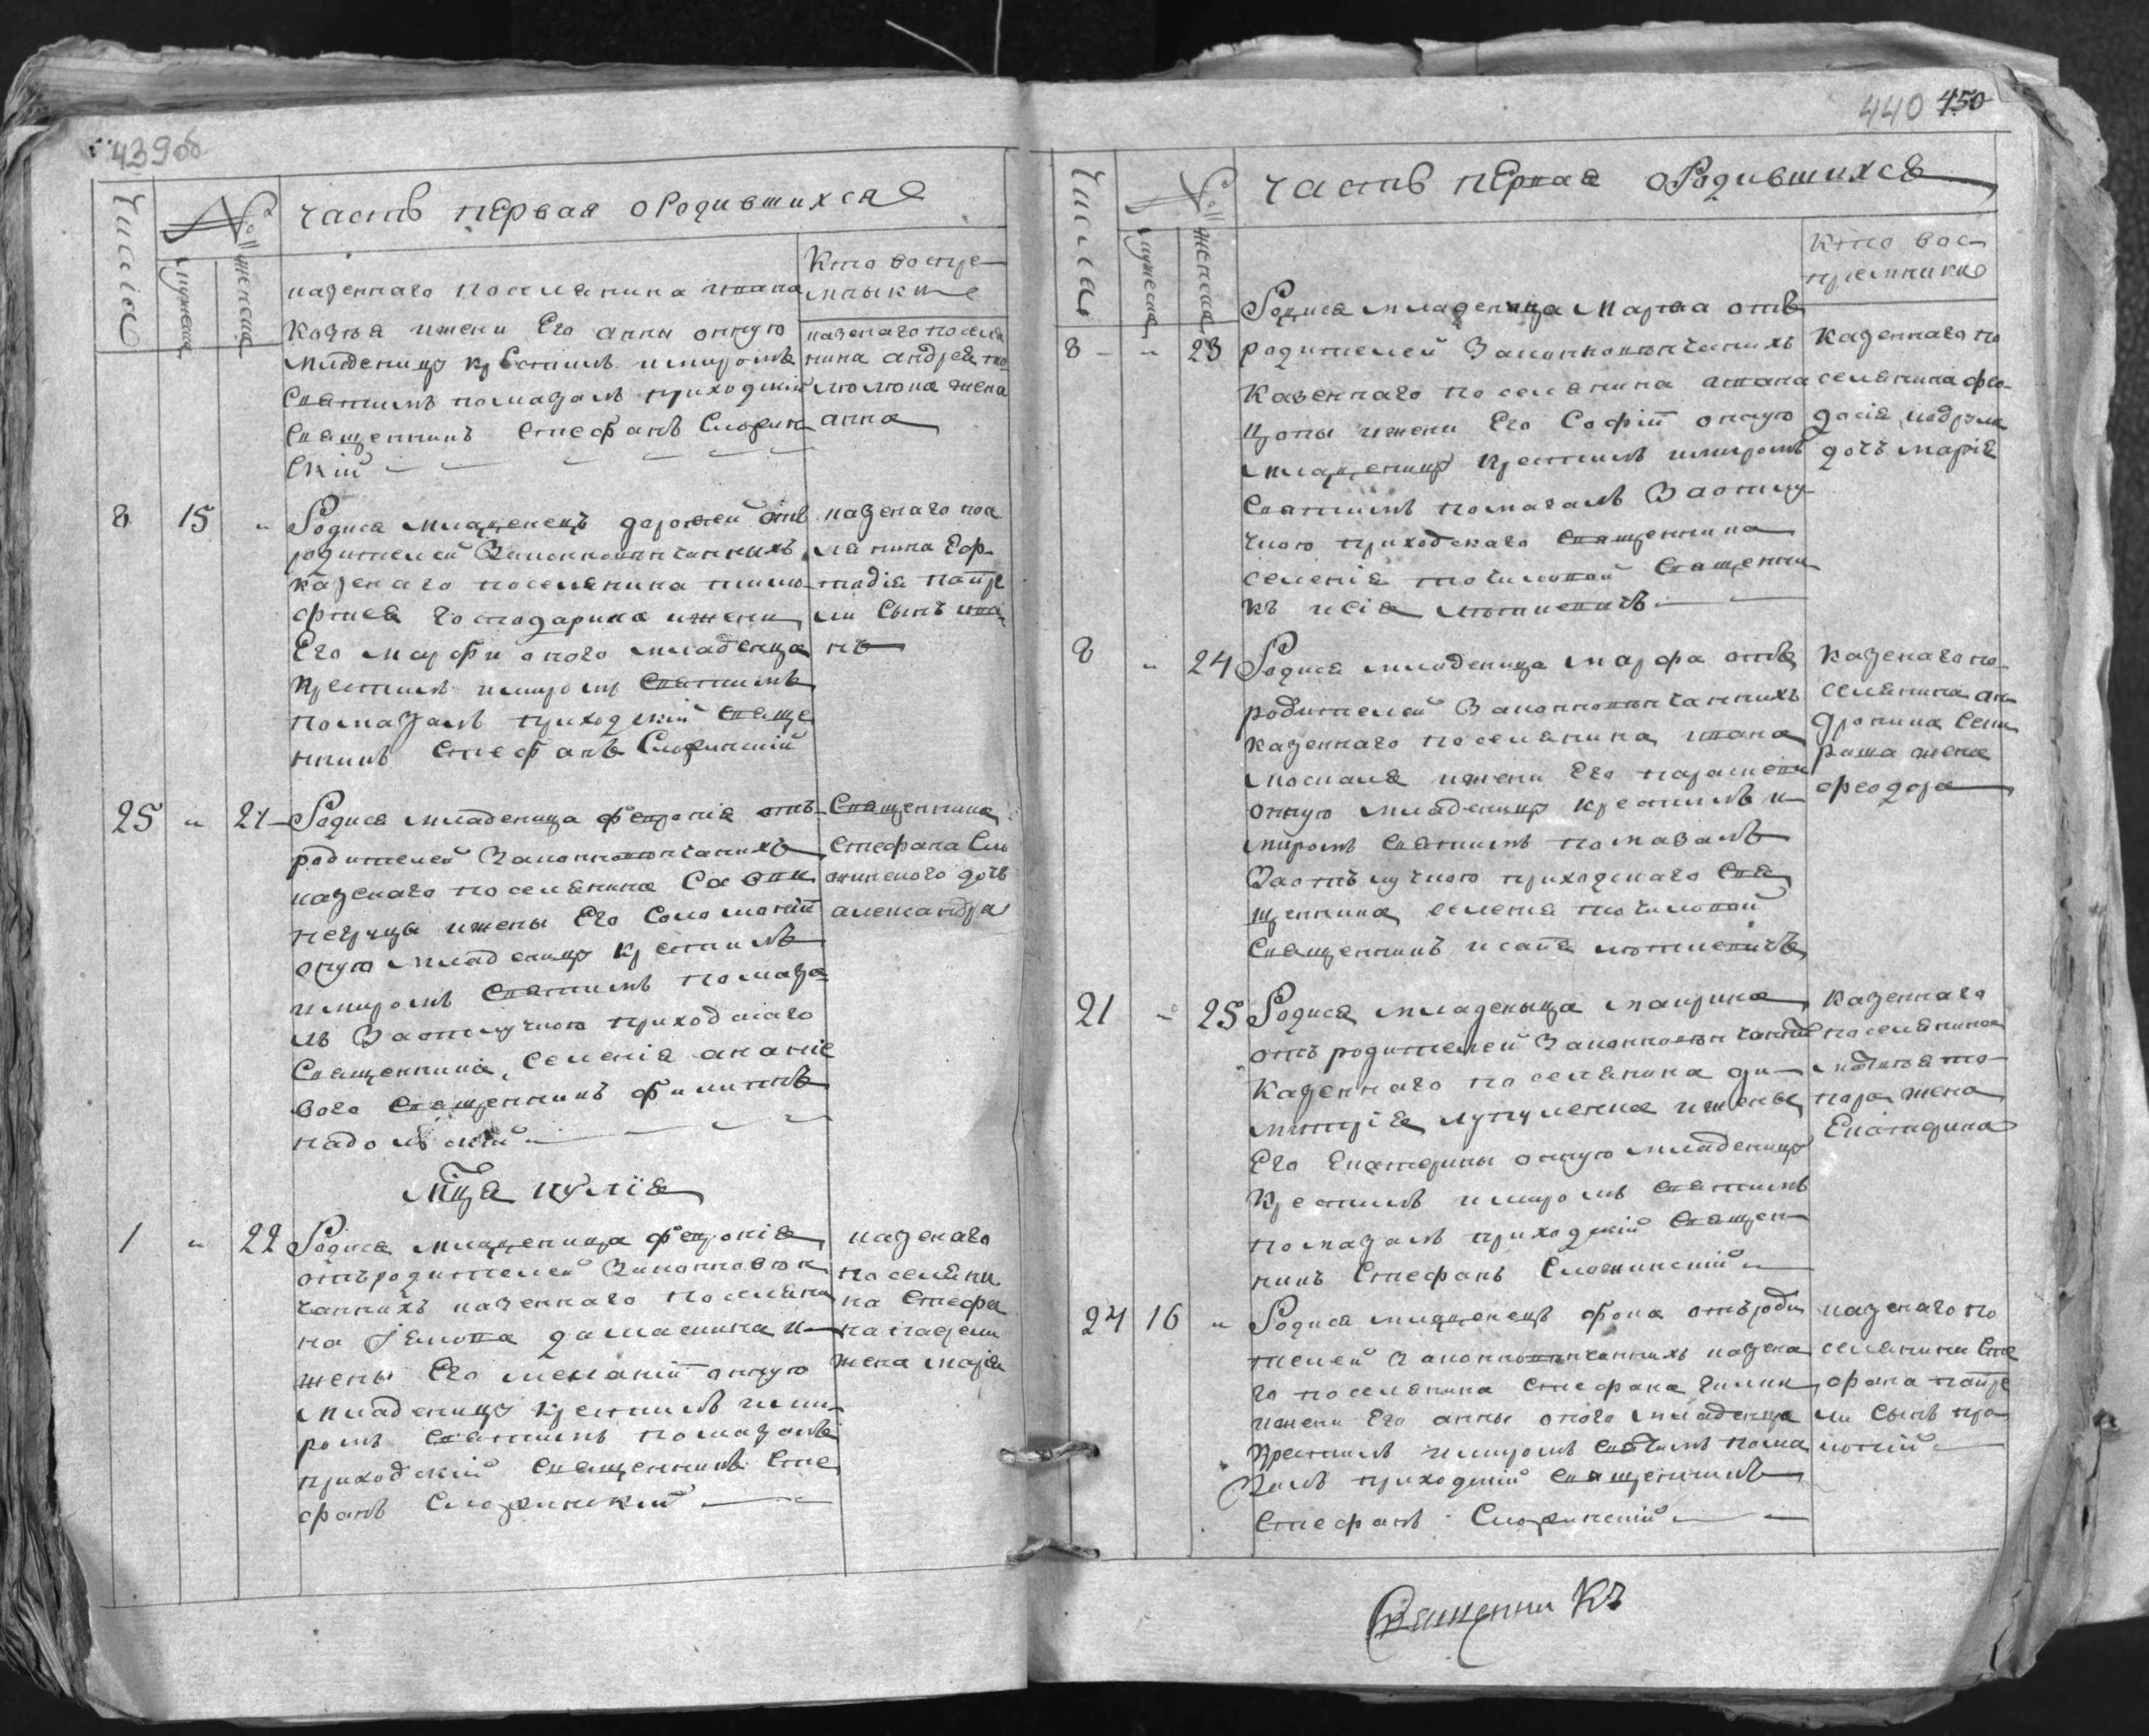 439об
Числа
№
мужеска
женска
часть первая о Родившихся
Кто воспре-
мныки
казеннаго поселянина ивана
Козъя ижени Его анны оную
младеницу крестилъ имиромъ
Святимъ помазалъ приходский
Священникъ Стефанъ Сложин
Ский
казенаго посела
нина андрея
жена
анна
8 15 "
Родися младенецъ дорофей отъ
родителей Законновѣнчанныхъ
казенаго поселянина тимо-
фтея господарика ижени
Его марфи оного младенца
крестилъ имиромъ Святимъ
помазалъ приходский Свяще
нникъ Стефанъ Сложинский
казенаго посе
лянина Еф-
тодія
ли Сынъ ива-
нъ
25 " 21
Родися младеница феѵронія отъ
родителей Законновѣнчанихъ
казенаго поселянина Савви
ижены Его Соломоніи
оную младеницу крестилъ
имиромъ Святимъ помаза
лъ Заотлучною приходскаго
Священника, Селенія ананіе
вого Священникъ филиппъ
надольский
Священника
Стефана Сло
жинского дочъ
александра
Мца иулія
1 " 22
Родися младеница феѵронія
отъ родителей Законновѣн
чаннихъ казеннаго поселяни
на Іякова дамаскина и
жены Его меланіи оную
младеницу крестилъ ими
ромъ Святимъ помазалъ
приходский Священникъ Сте
фанъ Сложинский
казенаго
поселяни
на Стефа
на
жена марія
440 450
Числа
№
мужеска
женска
часть первая о Родившихся
Кто вос-
приемники
8 - " 23
Родися младеница Марθа отъ
родителей Законновѣнчанихъ
Казеннаго поселянина ивана
цопы ижени Его Софіи оную
младеницу крестилъ имиромъ
Святимъ помазалъ Заотлу
чною приходскаго Священника
селенія точиловой Священни
къ исія
Казеннаго по
селянина фео-
досія
дочъ марія
8 " 24
Родися младеница марфа отъ
родителей Законновѣнчаннихъ
казеннаго поселянина ивана
москаля ижени Его параскеви
оную младеницу крестилъ и
миромъ Святимъ помазалъ
Заотълучною приходскаго Свя
щенника селенія точиловой
Священникъ исаія
Казенаго по
селянина ан-
дроника
жена
феодора
21 " 25
Родися младеныца маирина
отъ родителей Законновѣнчанніе
Казеннаго поселянина ди-
митрія лупуленка ижены
Его Екатерины оную младеницу
Крестилъ имиромъ святимъ
помазалъ приходский Священ
никъ Стефанъ Сложинский
казеннаго
поселянина
жена
Екатерина
24 16 "
Родися младенецъ фока отъ роди
телей Законновѣнчаннихъ казена
го поселянина Стефана
ижени Его анны оного младенца
Крестилъ имиромъ Святимъ пома
Залъ приходский Священникъ
Стефанъ Сложинский
казенаго по
селянина Сте
фана
ли Сынъ про
копий
Священникъ